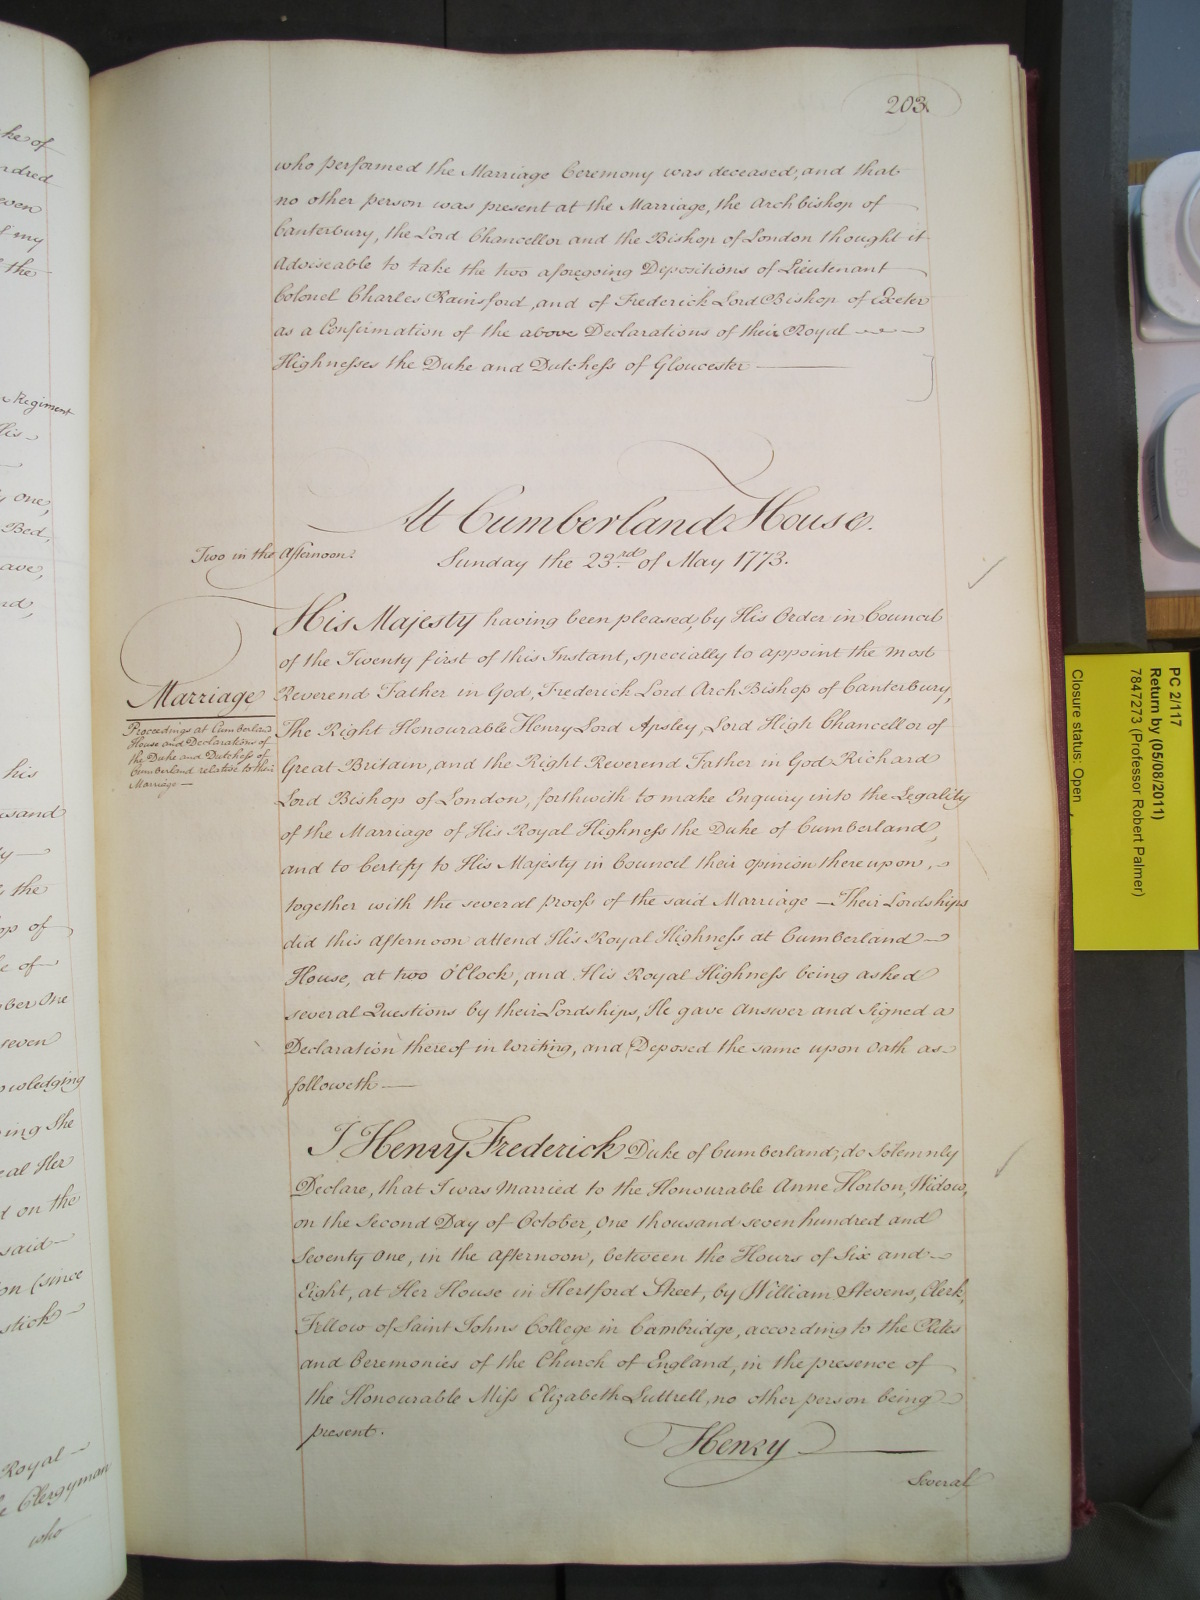 203.
who performed the Marriage Ceremony was deceased, and that
no other person was present at the Marriage, the Archbishop of
Canterbury, the Lord Chancellor and the Bishop of London thought it
Adviseable to take the two aforegoing Depositions of Lieutenant
Colonel Charles Rainsford, and of Frederick Lord Bishop of Exeter
as a Confirmation of the above Declarations of their Royal
Highnesses the Duke and Dutchess of Gloucester
At Cumberland House.
Two in the Afternoon.
Sunday the 23rd of May 1773.
His Majesty having been pleased, by His Order in Council
of the Twenty first of this Instant, specially to appoint the most
Reverend Father in God, Frederick Lord ArchBishop of Canterbury,
The Right Honourable Henry Lord Apsley, Lord High Chancellor of
Great Britain, and the Right Reverend Father in God Richard
Lord Bishop of London, forthwith to make Enquiry into the Legality
of the Marriage of His Royal Highness the Duke of Cumberland,
and to Certify to His Majesty in Council their opinion thereupon,
together with the several proofs of the said Marriage — Their Lordships
did this afternoon attend His Royal Highness at Cumberland
House, at two O'Clock, and His Royal Highness being asked
several Questions by their Lordships, He gave Answer and Signed a
Declaration thereof in Writing, and Deposed the same upon Oath as
followeth —
Marriage
Proceedings at Cumberland
House and Declarations of
the Duke and Dutchess of
Cumberland relative to their
Marriage —
I Henry Frederick Duke of Cumberland, do Solemnly
Declare, that I was Married to the Honourable Anne Horton, Widow,
on the Second Day of October, One thousand seven hundred and
Seventy One, in the afternoon, between the Hours of Six and
Eight, at Her House in Hertford Street, by William Stevens, Clerk,
Fellow of Saint Johns College in Cambridge, according to the Rites
and Ceremonies of the Church of England, in the presence of
the Honourable Miss Elizabeth Luttrell, no other person being
present.
Henry
Several
ke of
ndred
even
f my
the
Regiment
His
one,
Bed,
ave,
rd,
his
usand
the
op of
e of
ber One
seven
owledging
ing She
eal Her
d on the
said
on (since
stick
Royal
e Clergyman
who
PC 2/117
Return by (05/08/2011)
7847273 (Professor Robert Palmer)
Closure status: Open